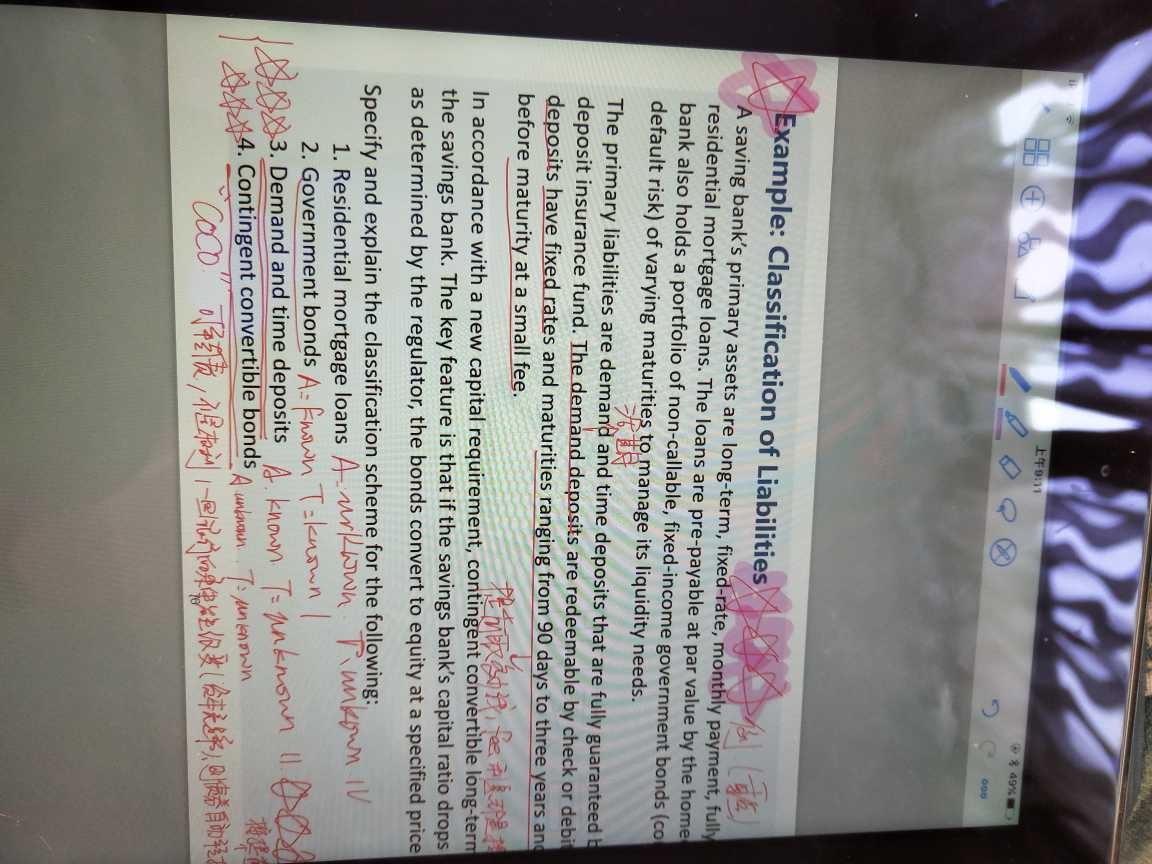 上午9:11
49%
Example: Classification of Liabilities
A saving bank's primary assets are long-term, fixed-rate, monthly payment, fully
residential mortgage loans. The loans are pre-payable at par value by the home
bank also holds a portfolio of non-callable, fixed-income government bonds (co
default risk) of varying maturities to manage its liquidity needs.
The primary liabilities are demand and time deposits that are fully guaranteed b
deposit insurance fund. The demand deposits are redeemable by check or debit
deposits have fixed rates and maturities ranging from 90 days to three years and
before maturity at a small fee.
In accordance with a new capital requirement, contingent convertible long-term
the savings bank. The key feature is that if the savings bank's capital ratio drops
as determined by the regulator, the bonds convert to equity at a specified price
Specify and explain the classification scheme for the following:
1. Residential mortgage loans A. unknown T. unknown IV
2. Government bonds A=known T=known I
3. Demand and time deposits A. known T=unknown II
4. Contingent convertible bonds A. unknown T: unknown
"COCO"